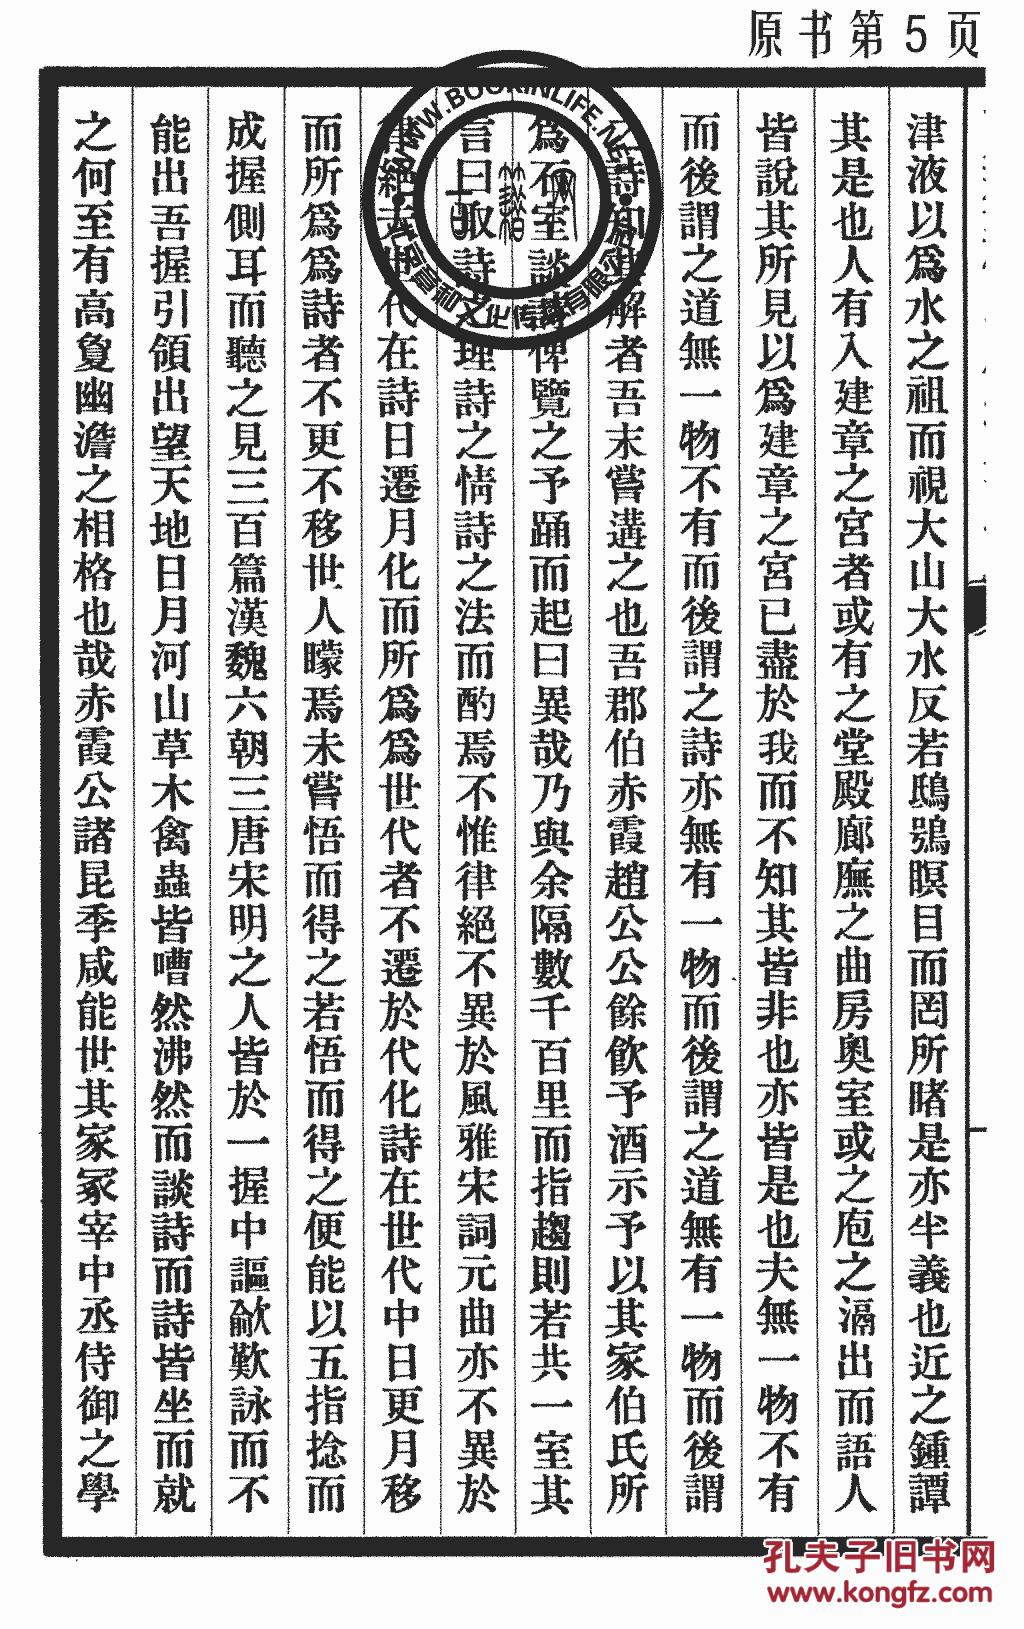 原书第5页
津液以爲水之祖而視大山大水反若鴟鴞瞑目而罔所睹是亦半義也近之鍾譚
其是也人有入建章之宮者或有之堂殿廊廡之曲房奥室或之庖之湢出而語人
皆說其所見以爲建章之宮已盡於我而不知其皆非也亦皆是也夫無一物不有
而後謂之道無一物不有而後謂之詩亦無有一物而後謂之道無有一物而後謂
詩知其解者吾末嘗遘之也吾郡伯赤霞趙公公餘飲予酒示予以其家伯氏所
爲石室談詩俾覽之予踊而起曰異哉乃與余隔數千百里而指趨則若共一室其
言曰取詩之理詩之情詩之法而酌焉不惟律絕不異於風雅宋詞元曲亦不異於
律絕去世代在詩日遷月化而所爲爲世代者不遷於代化詩在世代中日更月移
而所爲爲詩者不更不移世人矇焉未嘗悟而得之若悟而得之便能以五指捻而
成握側耳而聽之見三百篇漢魏六朝三唐宋明之人皆於一握中謳歈歎詠而不
能出吾握引領出望天地日月河山草木禽蟲皆嘈然沸然而談詩而詩皆坐而就
之何至有高敻幽澹之相格也哉赤霞公諸昆季咸能世其家冢宰中丞侍御之學
WWW.BOOKINLIFE.NET
文化传播有限公
孔夫子旧书网
www.kongfz.com